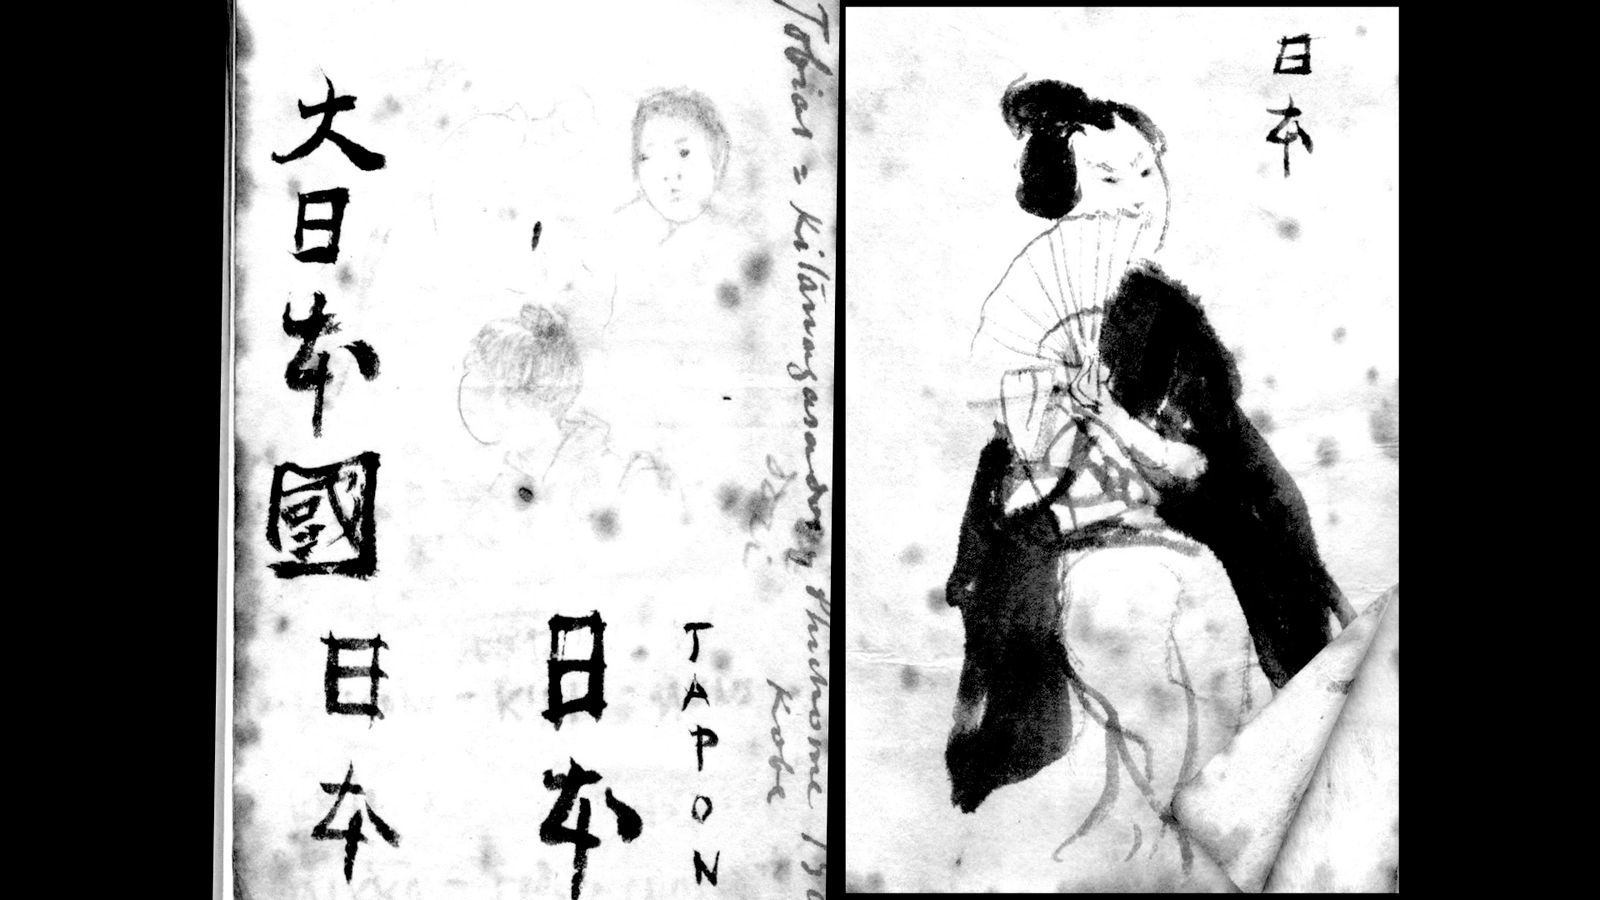 大日本國
日本
日本
JAPON
Tobias = Kitanagasadory
Kobe
日本